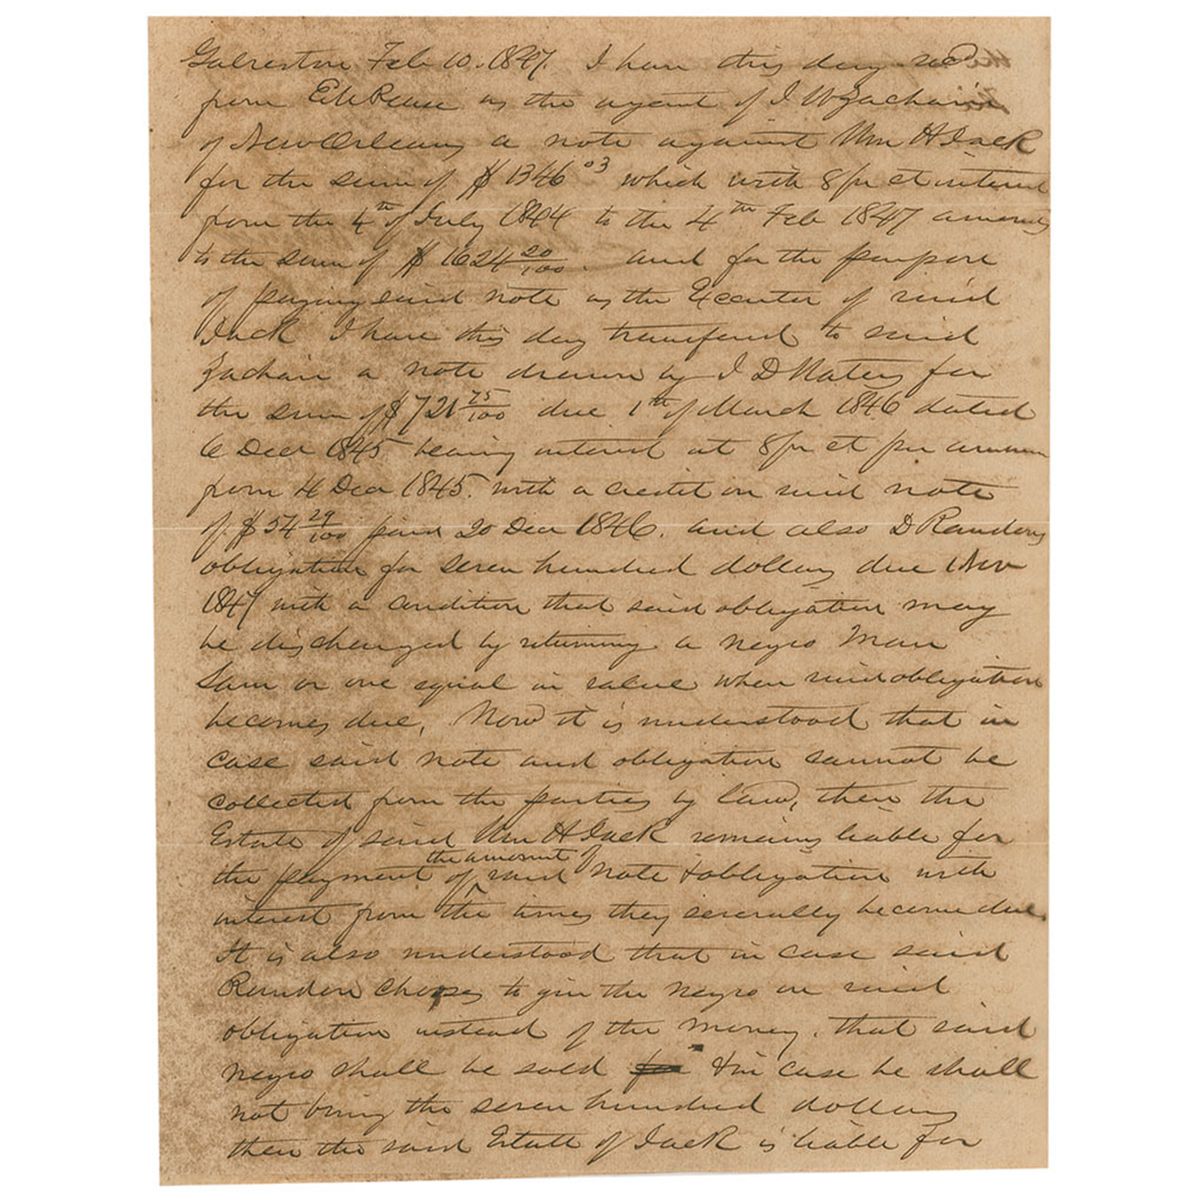 Galveston Feb 10. 1847. I have this day recd
from E M Pease as the agent of J W Zacharie
of New Orleans a note against Wm H Jack
for the sum of $1346 03 which with 8 pr ct interest
from the 4th of July 1844 to the 4th Feb 1847 amounts
to the sum of $1624 20/100. and for the purpose
of paying said note as the Executor of said
Jack I have this day transferred to said
Zacharie a note drawn by J D Waters for
the sum of $721 75/100 due 1th of March 1846 dated
6 Decr 1845 bearing interest at 8 pr ct per annum
from 4 Decr 1845. with a credit on said note
of $54 29/100 paid 20 Decr 1846. and also D Randons
obligation for seven hundred dollars due 1 Nov
1847 with a condition that said obligation may
be discharged by returning a negro Man
Sam or one equal in value when said obligation
becomes due. Now it is understood that in
case said note and obligation cannot be
collected from the parties by law, then the
Estate of said Wm H Jack remains liable for
the payment of the amount of said Note & obligation with
interest from the times they severally become due.
It is also understood that in case said
Randon chooses to give the Negro on said
obligation instead of the money, that said
negro shall be sold & in case he shall
not bring the seven hundred dollars
then the said Estate of Jack is liable for